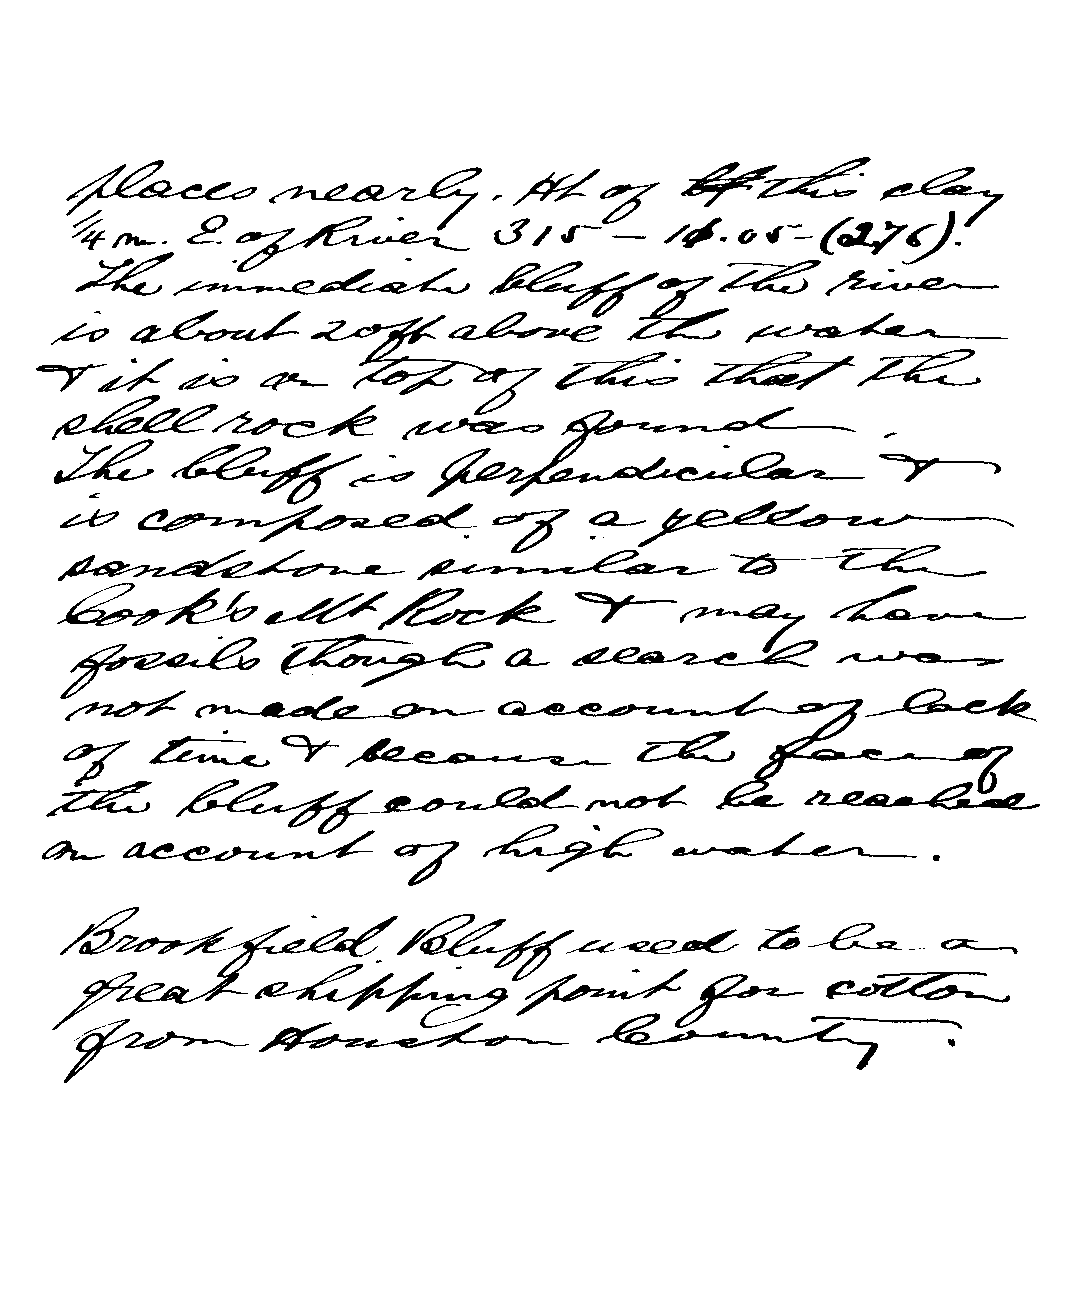 places nearly. Ht of this clay
1/4 m. E. of River 315 – .05 – (276).
The immediate bluff of the river
is about 20ft above the water
& it is on top of this that the
shell rock was found.
The bluff is perpendicular &
is composed of a yellow
sandstone similar to the
Cook's Mt Rock & may have
fossils though a search was
not made on account of lack
of time & because the face of
the bluff could not be reached
on account of high water.
Brookfield Bluff used to be a
great shipping point for cotton
from Houston County.